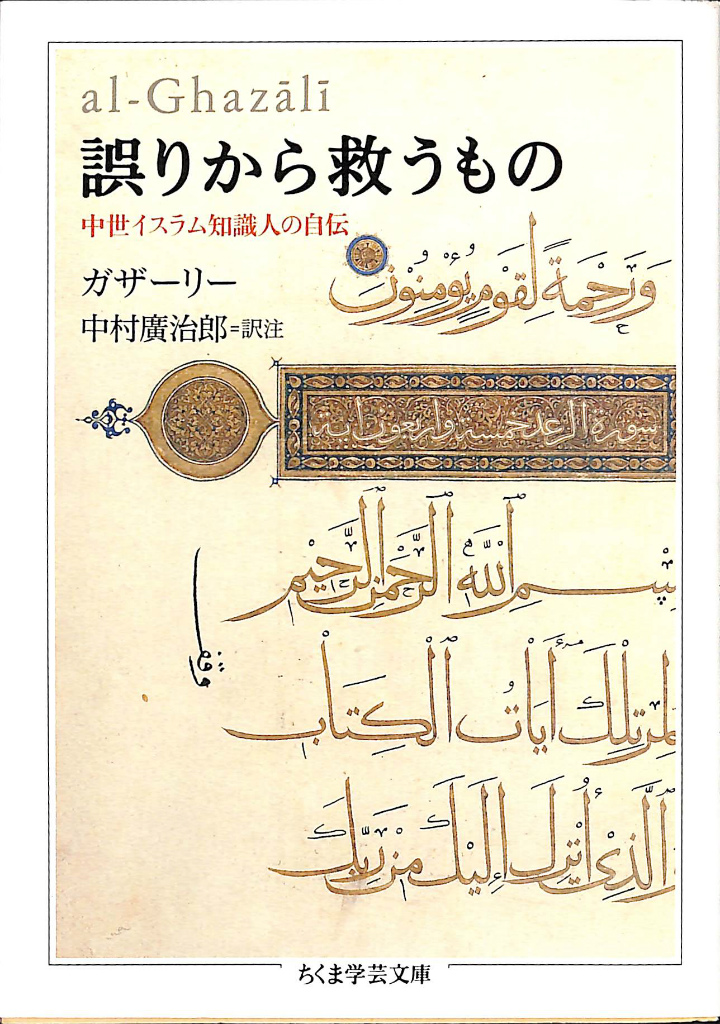 al-Ghazālī
誤りから救うもの
中世イスラム知識人の自伝
ガザーリー
中村廣治郎=訳注
وَرَحْمَةً لِقَوْمٍ يُؤْمِنُونَ
سورة الرعد خمسة واربعون اية
بِسْمِ اللَّهِ الرَّحْمَنِ الرَّحِيمِ
المر تِلْكَ آيَاتُ الْكِتَابِ
وَالَّذِي أُنْزِلَ إِلَيْكَ مِنْ رَبِّكَ
ちくま学芸文庫